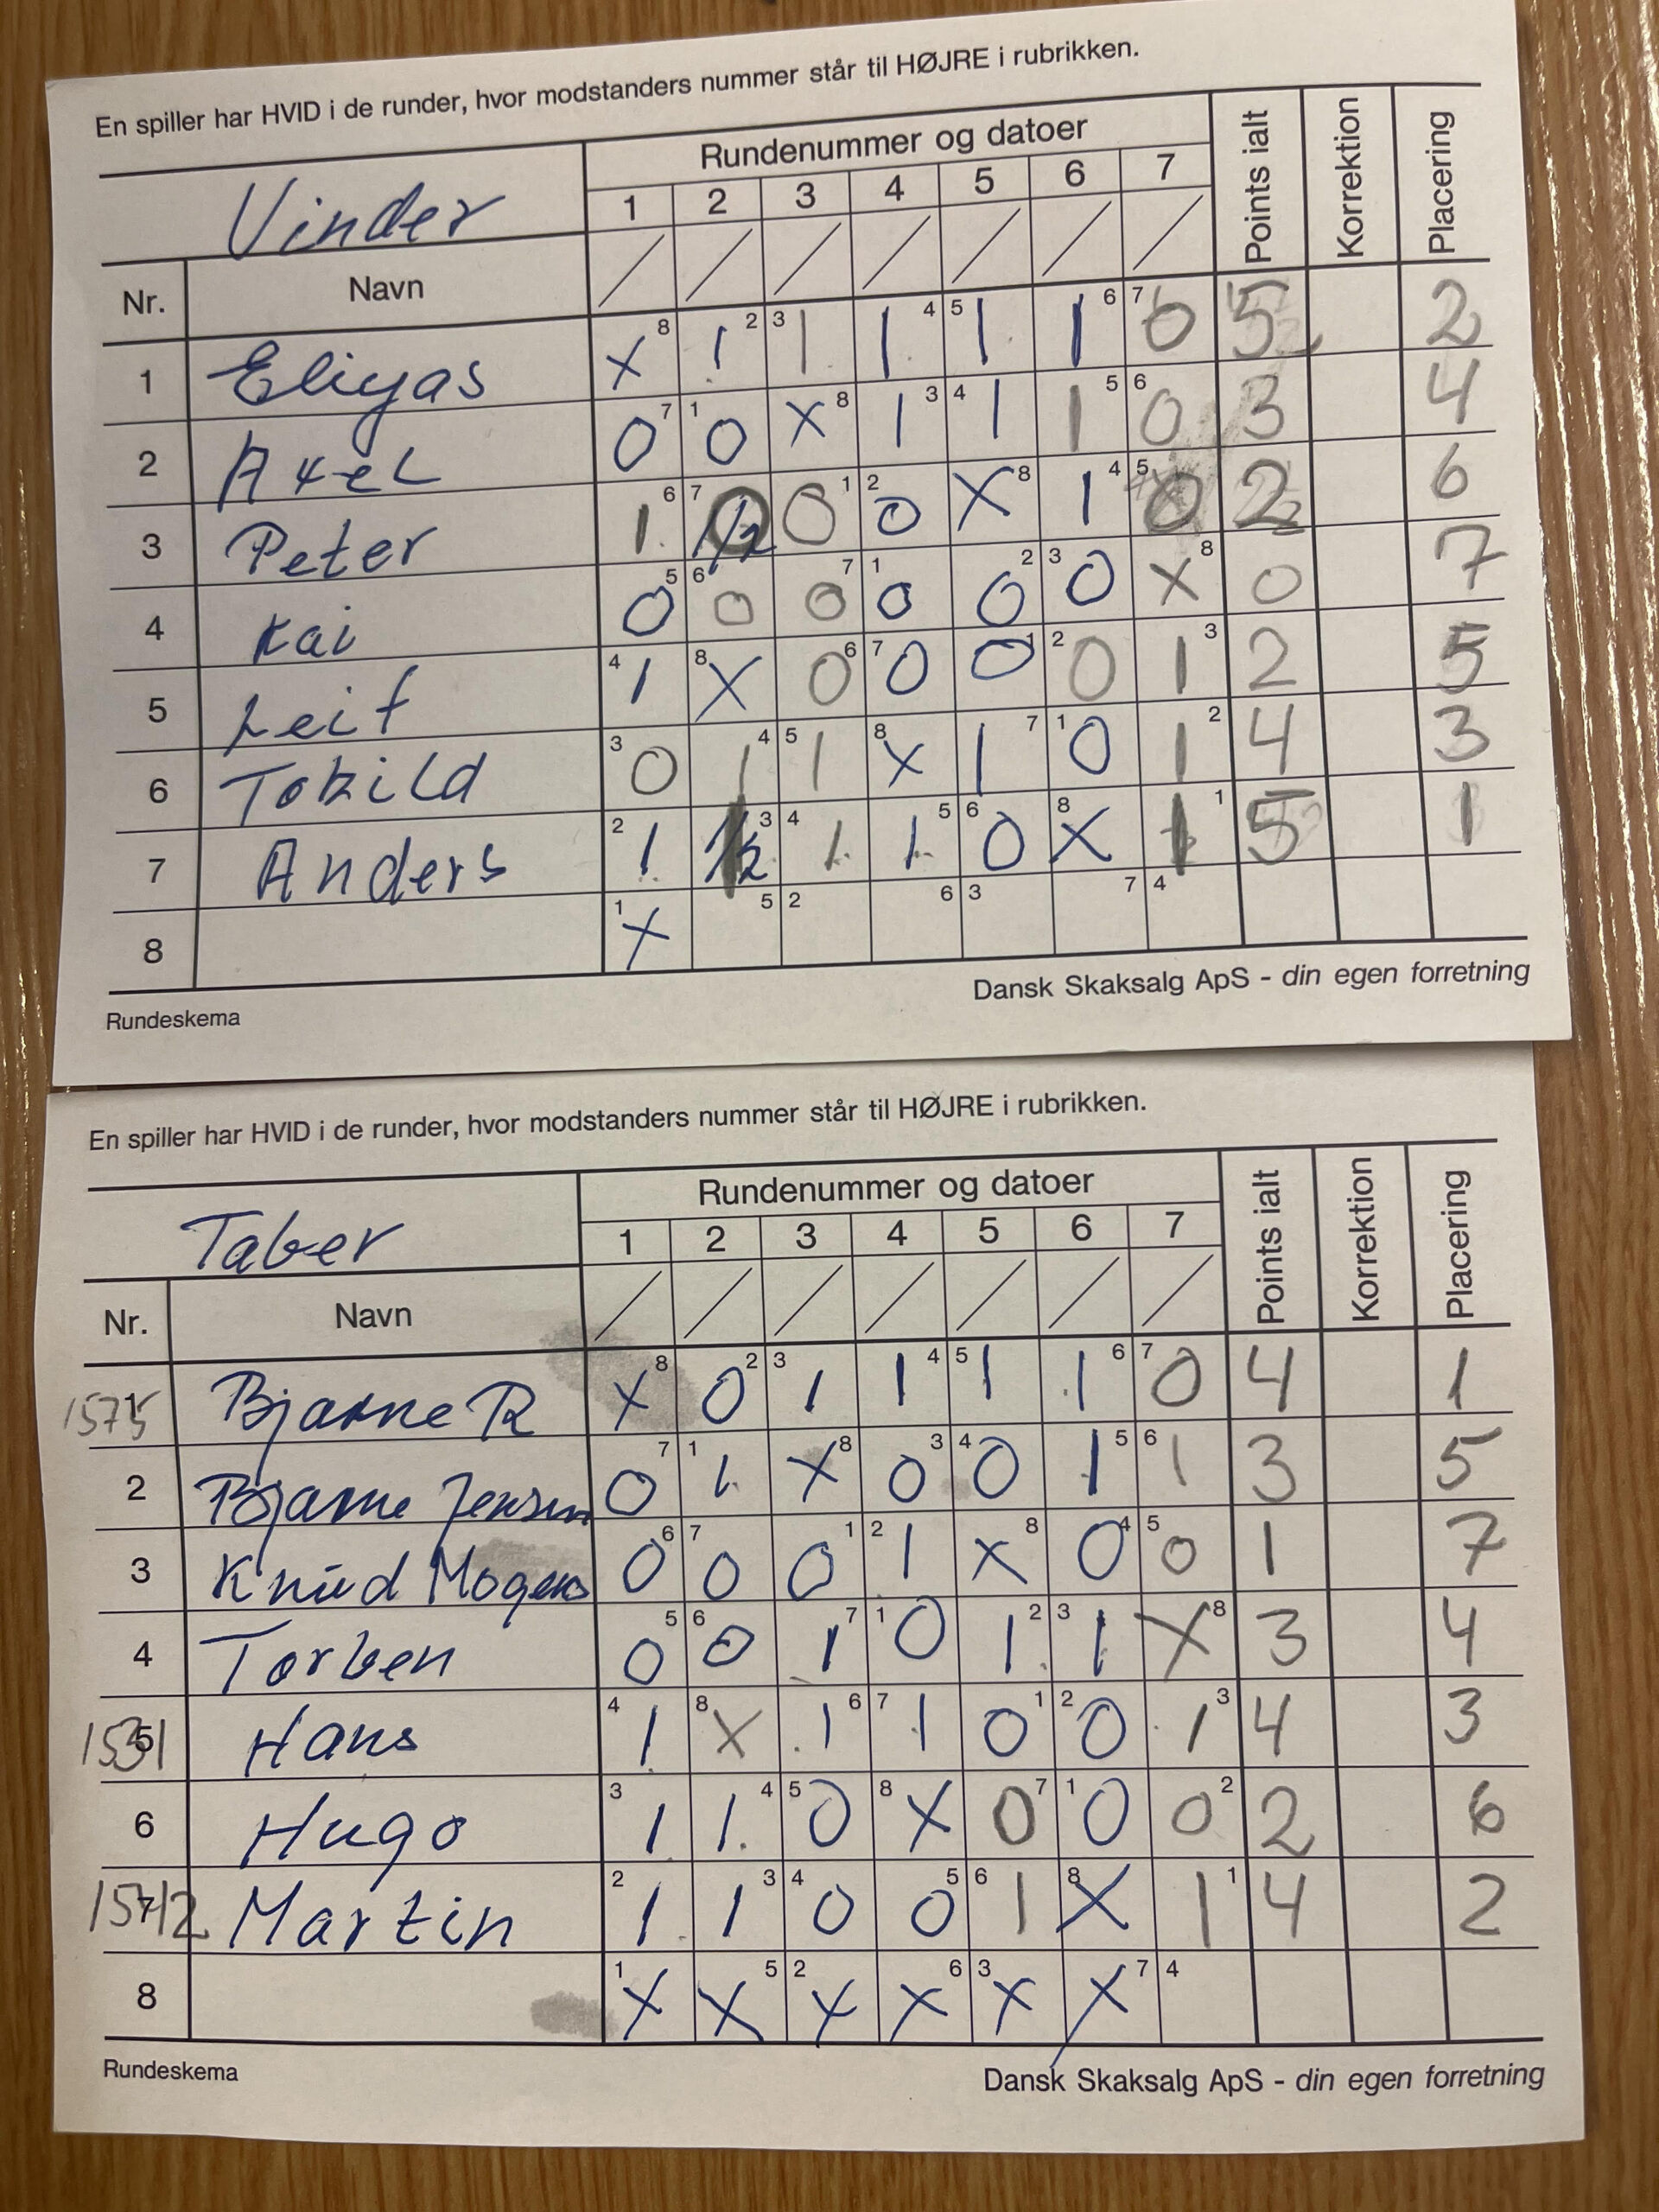 En spiller har HVID i de runder, hvor modstanders nummer står til HØJRE i rubrikken.
Vinder Rundenummer og datoer Points ialt Korrektion Placering
1 2 3 4 5 6 7
Nr. Navn
1 Eliyas X 8 1 2 3 1 1 4 5 1 1 6 7 0 5 2
2 Axel 0 7 1 0 X 8 1 3 4 1 1 5 6 0 3 4
3 Peter 1 6 7 0 1 2 0 X 8 1 4 5 0 2 6
4 Kai 0 5 6 0 0 7 1 0 0 2 3 0 X 8 0 7
5 Leif 4 1 8 X 0 6 7 0 0 1 2 0 1 3 2 5
6 Tokild 3 0 1 4 5 1 8 X 1 7 1 0 1 2 4 3
7 Anders 2 1 ½ 3 4 1 1 5 6 0 8 X 1 1 5 1
8 1 X 5 2 6 3 7 4
Rundeskema Dansk Skaksalg ApS - din egen forretning
En spiller har HVID i de runder, hvor modstanders nummer står til HØJRE i rubrikken.
Taber Rundenummer og datoer Points ialt Korrektion Placering
1 2 3 4 5 6 7
Nr. Navn
1575 Bjarne R X 8 0 2 3 1 1 4 5 1 1 6 7 0 4 1
2 Bjarne Jensen 0 7 1 1 X 8 0 3 4 0 1 5 6 1 3 5
3 Knud Mogens 0 6 7 0 0 1 2 1 X 8 0 4 5 0 1 7
4 Torben 0 5 6 0 1 7 1 0 1 2 3 1 X 8 3 4
5 Hans 4 1 8 X 1 6 7 1 0 1 2 0 1 3 4 3
6 Hugo 3 1 1 4 5 0 8 X 0 7 1 0 0 2 2 6
Martin 2 1 1 3 4 0 0 5 6 1 8 X 1 1 4 2
8 1 X X 5 2 X X 6 3 X X 7 4
Rundeskema Dansk Skaksalg ApS - din egen forretning